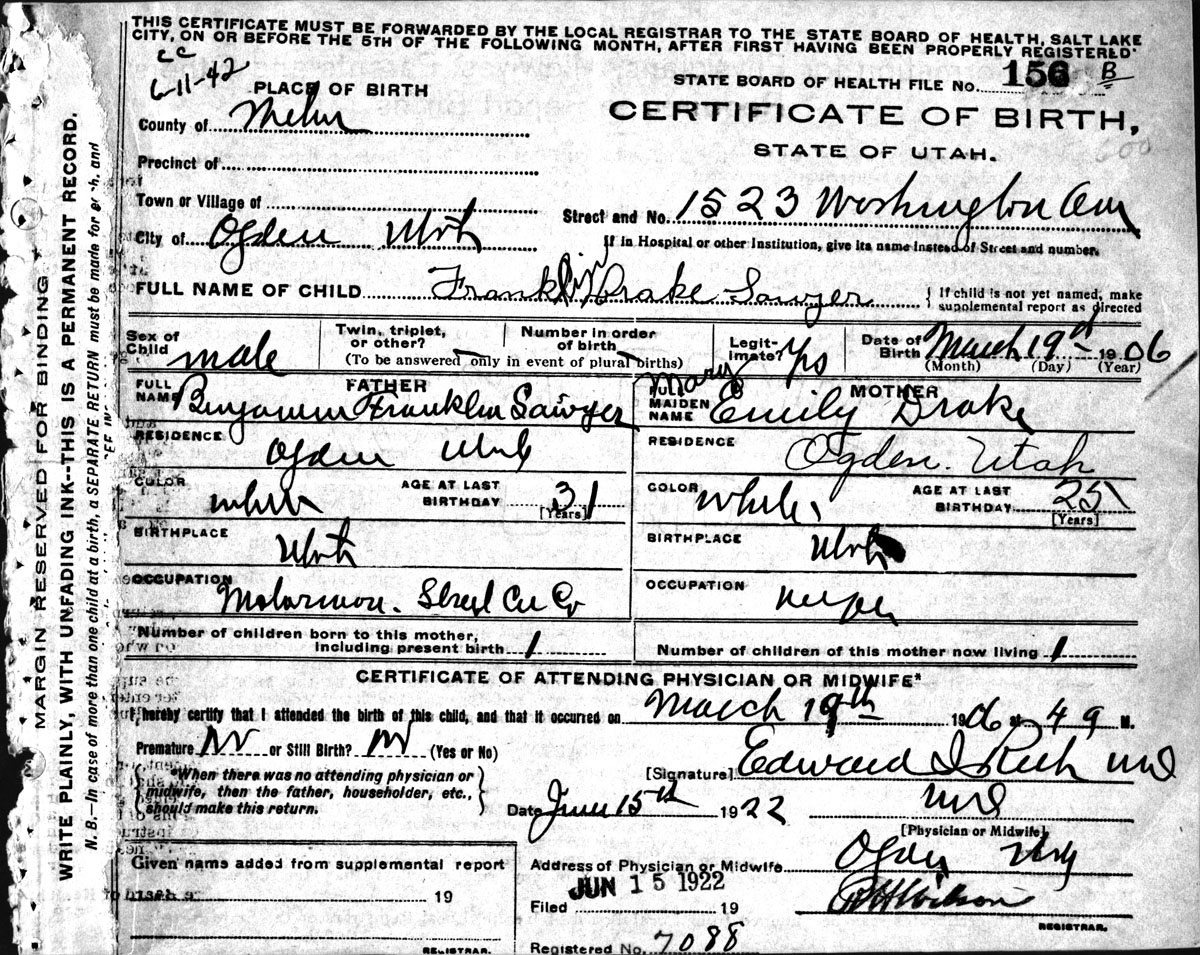 THIS CERTIFICATE MUST BE FORWARDED BY THE LOCAL REGISTRAR TO THE STATE BOARD OF HEALTH, SALT LAKE
CITY, ON OR BEFORE THE 5TH OF THE FOLLOWING MONTH, AFTER FIRST HAVING BEEN PROPERLY REGISTERED.
CC
6-11-42
PLACE OF BIRTH
STATE BOARD OF HEALTH FILE No. 156 B
CERTIFICATE OF BIRTH,
STATE OF UTAH.
County of
Precinct of
Town or Village of
Street and No. 1523 Washington Ave
City of Ogden Utah
If in Hospital or other Institution, give its name instead of Street and number.
FULL NAME OF CHILD Franklin Drake Sawyer
{ If child is not yet named, make
supplemental report as directed
Sex of Child male
Twin, triplet, or other?
Number in order of birth
(To be answered only in event of plural births)
Legitimate? Yes
Date of Birth March 19th 1906
(Month) (Day) (Year)
FATHER
FULL NAME Benjamin Franklin Sawyer
MOTHER
FULL MAIDEN NAME Mary Emily Drake
RESIDENCE Ogden Utah
RESIDENCE Ogden. Utah
COLOR white
AGE AT LAST BIRTHDAY 31 [Years]
COLOR white
AGE AT LAST BIRTHDAY 25 [Years]
BIRTHPLACE Utah
BIRTHPLACE Utah
OCCUPATION Motorman. Street Car Co
OCCUPATION
Number of children born to this mother, including present birth 1
Number of children of this mother now living 1
CERTIFICATE OF ATTENDING PHYSICIAN OR MIDWIFE*
I hereby certify that I attended the birth of this child, and that it occurred on March 19th 1906 at 49 M.
Premature No or Still Birth? No (Yes or No)
{ *When there was no attending physician or
midwife, then the father, householder, etc.,
should make this return. }
[Signature] Edward I Rich MD
Date June 15th 1922
MD
[Physician or Midwife]
Given name added from supplemental report
19
REGISTRAR.
Address of Physician or Midwife Ogden Utah
JUN 15 1922
Filed 19
Wilson
REGISTRAR.
Registered No. 7088
MARGIN RESERVED FOR BINDING
WRITE PLAINLY, WITH UNFADING INK--THIS IS A PERMANENT RECORD.
N. B.--In case of more than one child at a birth, a SEPARATE RETURN must be made for each, and